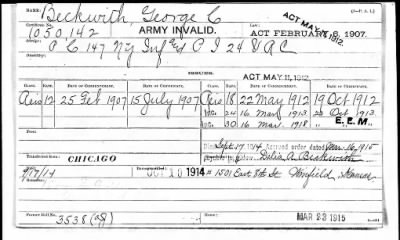 NAME: Beckwith, George C
Certificate No. 1050,142
ARMY INVALID.
ACT FEBRUARY 6, 1907.
ACT MAY 11, 1912.
C 147 N.Y. Inf and C I 24 V R C
ACT MAY 11, 1912.
CLASS. RATE. DATE OF COMMENCEMENT. DATE OF CERTIFICATE. CLASS. RATE. DATE OF COMMENCEMENT. DATE OF CERTIFICATE.
12 25 Feb 1907 15 July 1907 18 22 May 1912 19 Oct 1912
24 16 Mar 1913 23 Oct 1913
30 16 Mar 1918 " E.E.M. "
Died Sept 17, 1914 Accrued order dated Jan 16, 1915
Delia A Beckwith
CHICAGO
9/17/14
1914
# 1501 East 8th St Winfield, Kansas
3538
MAR 23 1915